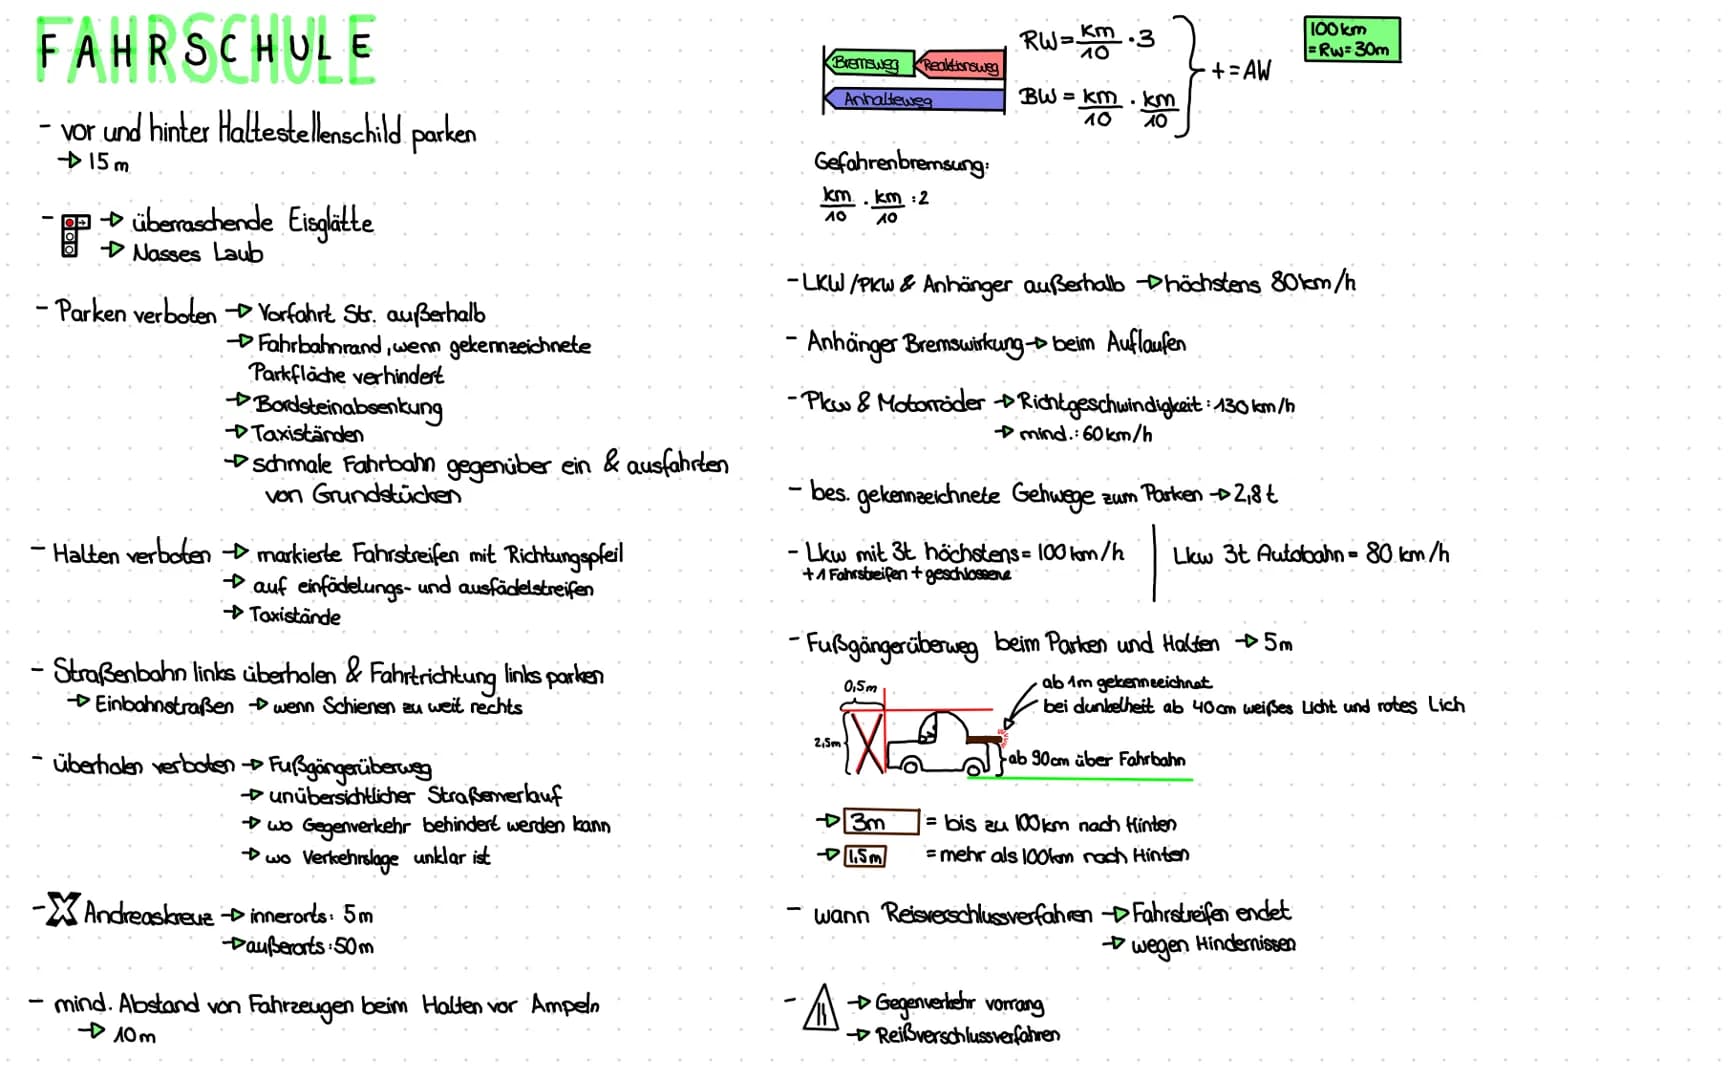 FAHRSCHULE
- vor und hinter Haltestellenschild parken
→ 15 m
- → überraschende Eisglätte
→ Nasses Laub
- Parken verboten → Vorfahrt Str. außerhalb
→ Fahrbahnrand, wenn gekennzeichnete
Parkfläche verhindert
→ Bordsteinabsenkung
→ Taxiständen
→ schmale Fahrbahn gegenüber ein & ausfahrten
von Grundstücken
- Halten verboten → markierte Fahrstreifen mit Richtungspfeil
→ auf einfädelungs- und ausfädelstreifen
→ Taxistände
- Straßenbahn links überholen & Fahrtrichtung links parken
→ Einbahnstraßen → wenn Schienen zu weit rechts
- überholen verboten → Fußgängerüberweg
→ unübersichtlicher Straßenverlauf
→ wo Gegenverkehr behindert werden kann
→ wo Verkehrslage unklar ist
- Andreaskreuz → innerorts: 5m
→ außerorts: 50m
- mind. Abstand von Fahrzeugen beim Halten vor Ampeln
→ 10m
Bremsweg Reaktionsweg
Anhalteweg
RW = km/10 · 3
BW = km/10 · km/10
+ = AW
100 km
= RW = 30m
Gefahrenbremsung:
km/10 · km/10 : 2
- LKW/PKW & Anhänger außerhalb → höchstens 80 km/h
- Anhänger Bremswirkung → beim Auflaufen
- Pkw & Motorräder → Richtgeschwindigkeit: 130 km/h
→ mind.: 60 km/h
- bes. gekennzeichnete Gehwege zum Parken → 2,8 t
- Lkw mit 3t höchstens = 100 km/h
+ 1 Fahrstreifen + geschlossene
Lkw 3t Autobahn = 80 km/h
- Fußgängerüberweg beim Parken und Halten → 5m
0,5m
2,5m
ab 1m gekennzeichnet
bei dunkelheit ab 40cm weißes Licht und rotes Lich
ab 90cm über Fahrbahn
→ 3m = bis zu 100km nach Hinten
→ 1,5m = mehr als 100km nach Hinten
- wann Reisverschlussverfahren → Fahrstreifen endet
→ wegen Hindernissen
- → Gegenverkehr vorrang
→ Reißverschlussverfahren